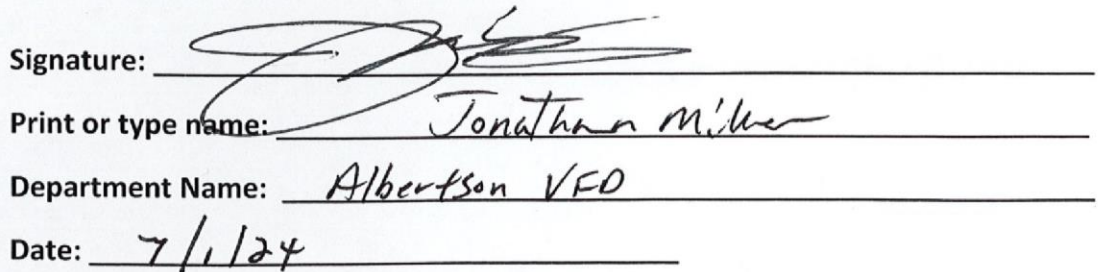 Signature:
Print or type name: Jonathan Miller
Department Name: Albertson VFD
Date: 7/1/24